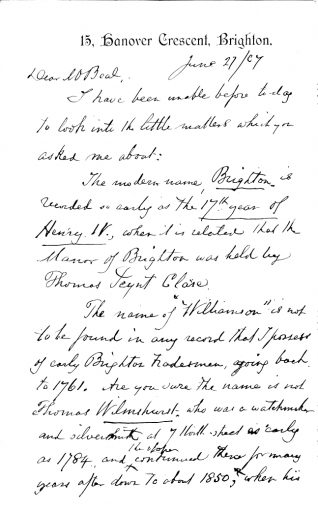 15, Hanover Crescent, Brighton.
June 27/07
Dear Mr Beal,
I have been unable before to-day
to look into the little matters which you
asked me about:
The modern name, Brighton is
recorded so early as the 17th year of
Henry IV., when it is related that the
Manor of Brighton was held by
Thomas Seynt Clare.
The name of "Williamson" is not
to be found in any record that I possess
of early Brighton tradesmen, going back
to 1761. Are you sure the name is not
Thomas Wilmshurst, who was a watchmaker
and silversmith at 7 North street as early
as 1784, and the shop continued there for many
years after down to about 1850, when his